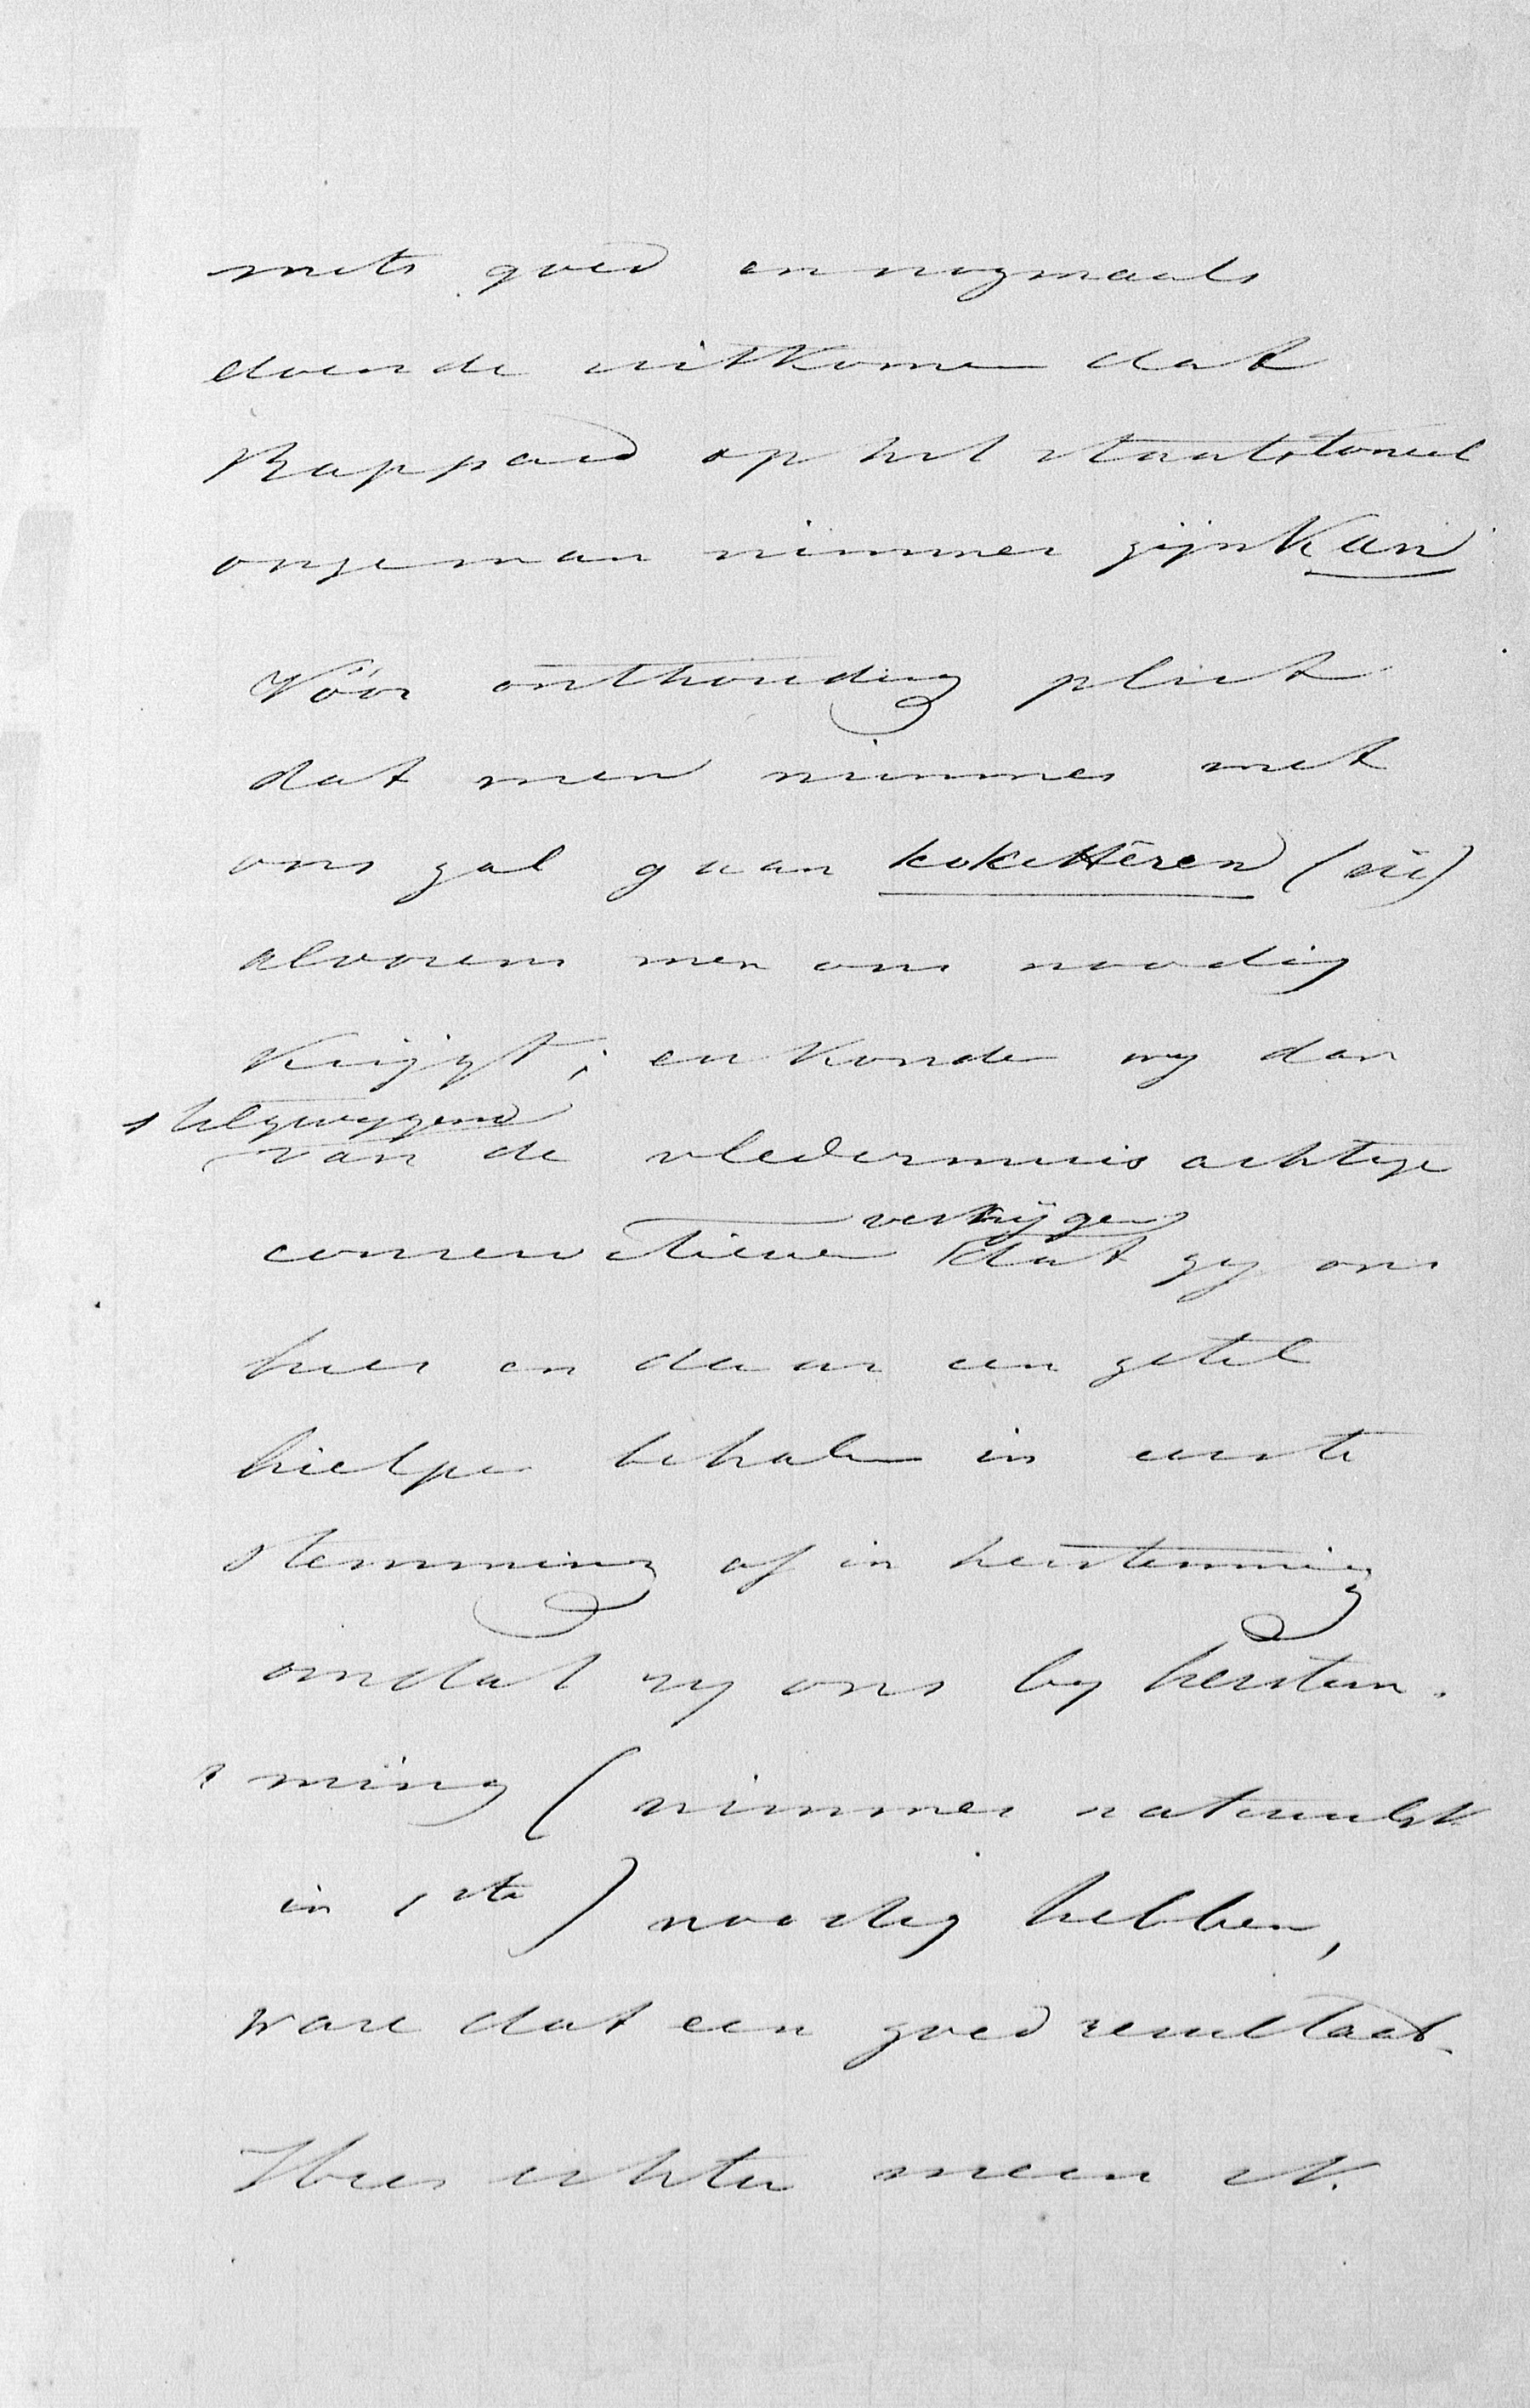 mets goed en nogmaals
doende uitkomen dat
Rappard op het staatstoneel
onze man nimmer zijn kan
Vóór onthouding pleit
dat men nimmer met
ons zal gaan koketteren (sic)
alvorens men ons noodig
krijgt; en konden wij dan
stilzwijgend
van de vledermuisachtige
verkrijgen
conservatieven dat zij ons
hier en daar een zetel
hielpen behalen in eerste
stemming of in herstemming
omdat zij ons by herstem-
ming (nimmer natuurlijk
in 1ste) noodig hebben,
ware dat een goed resultaat.
Hier echter meen ik